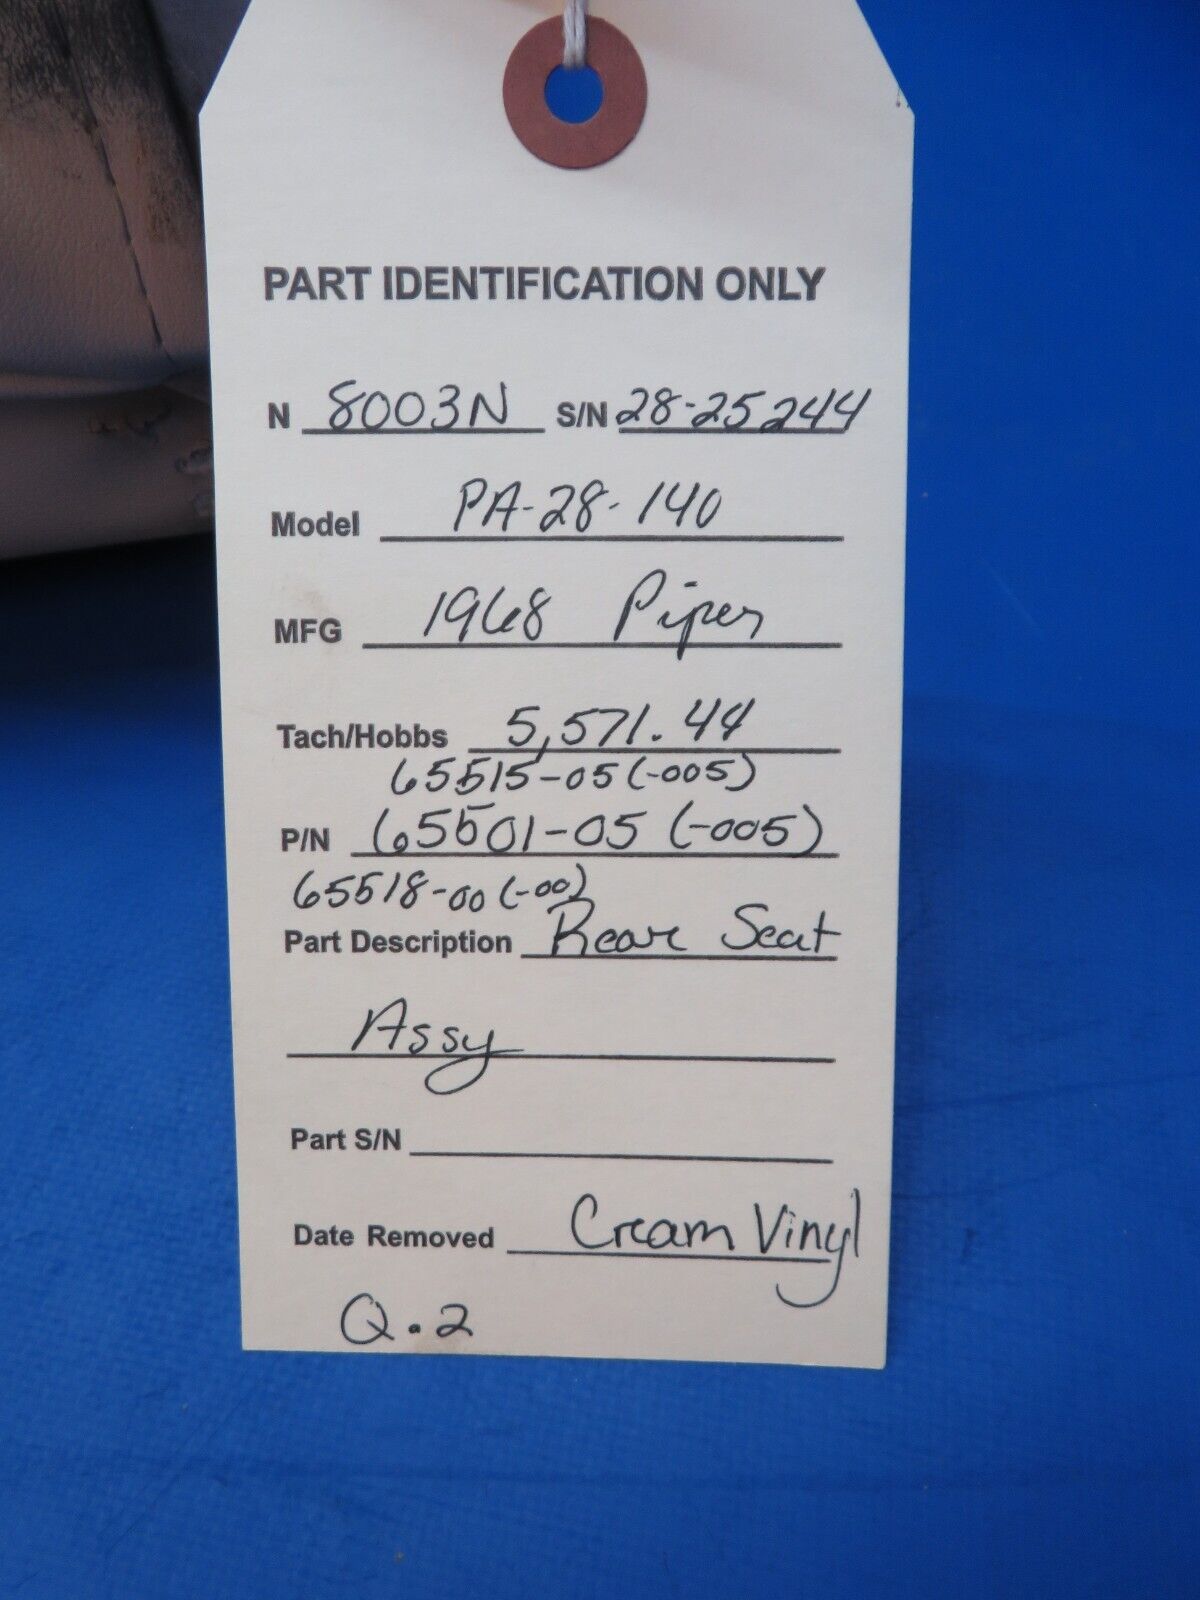 PART IDENTIFICATION ONLY
N 8003N S/N 28-25244
Model PA-28-140
MFG 1968 Piper
Tach/Hobbs 5,571.44
65515-05 (-005)
P/N 65501-05 (-005)
65518-00 (-00)
Part Description Rear Seat
Assy
Part S/N
Date Removed Cream Vinyl
Q.2